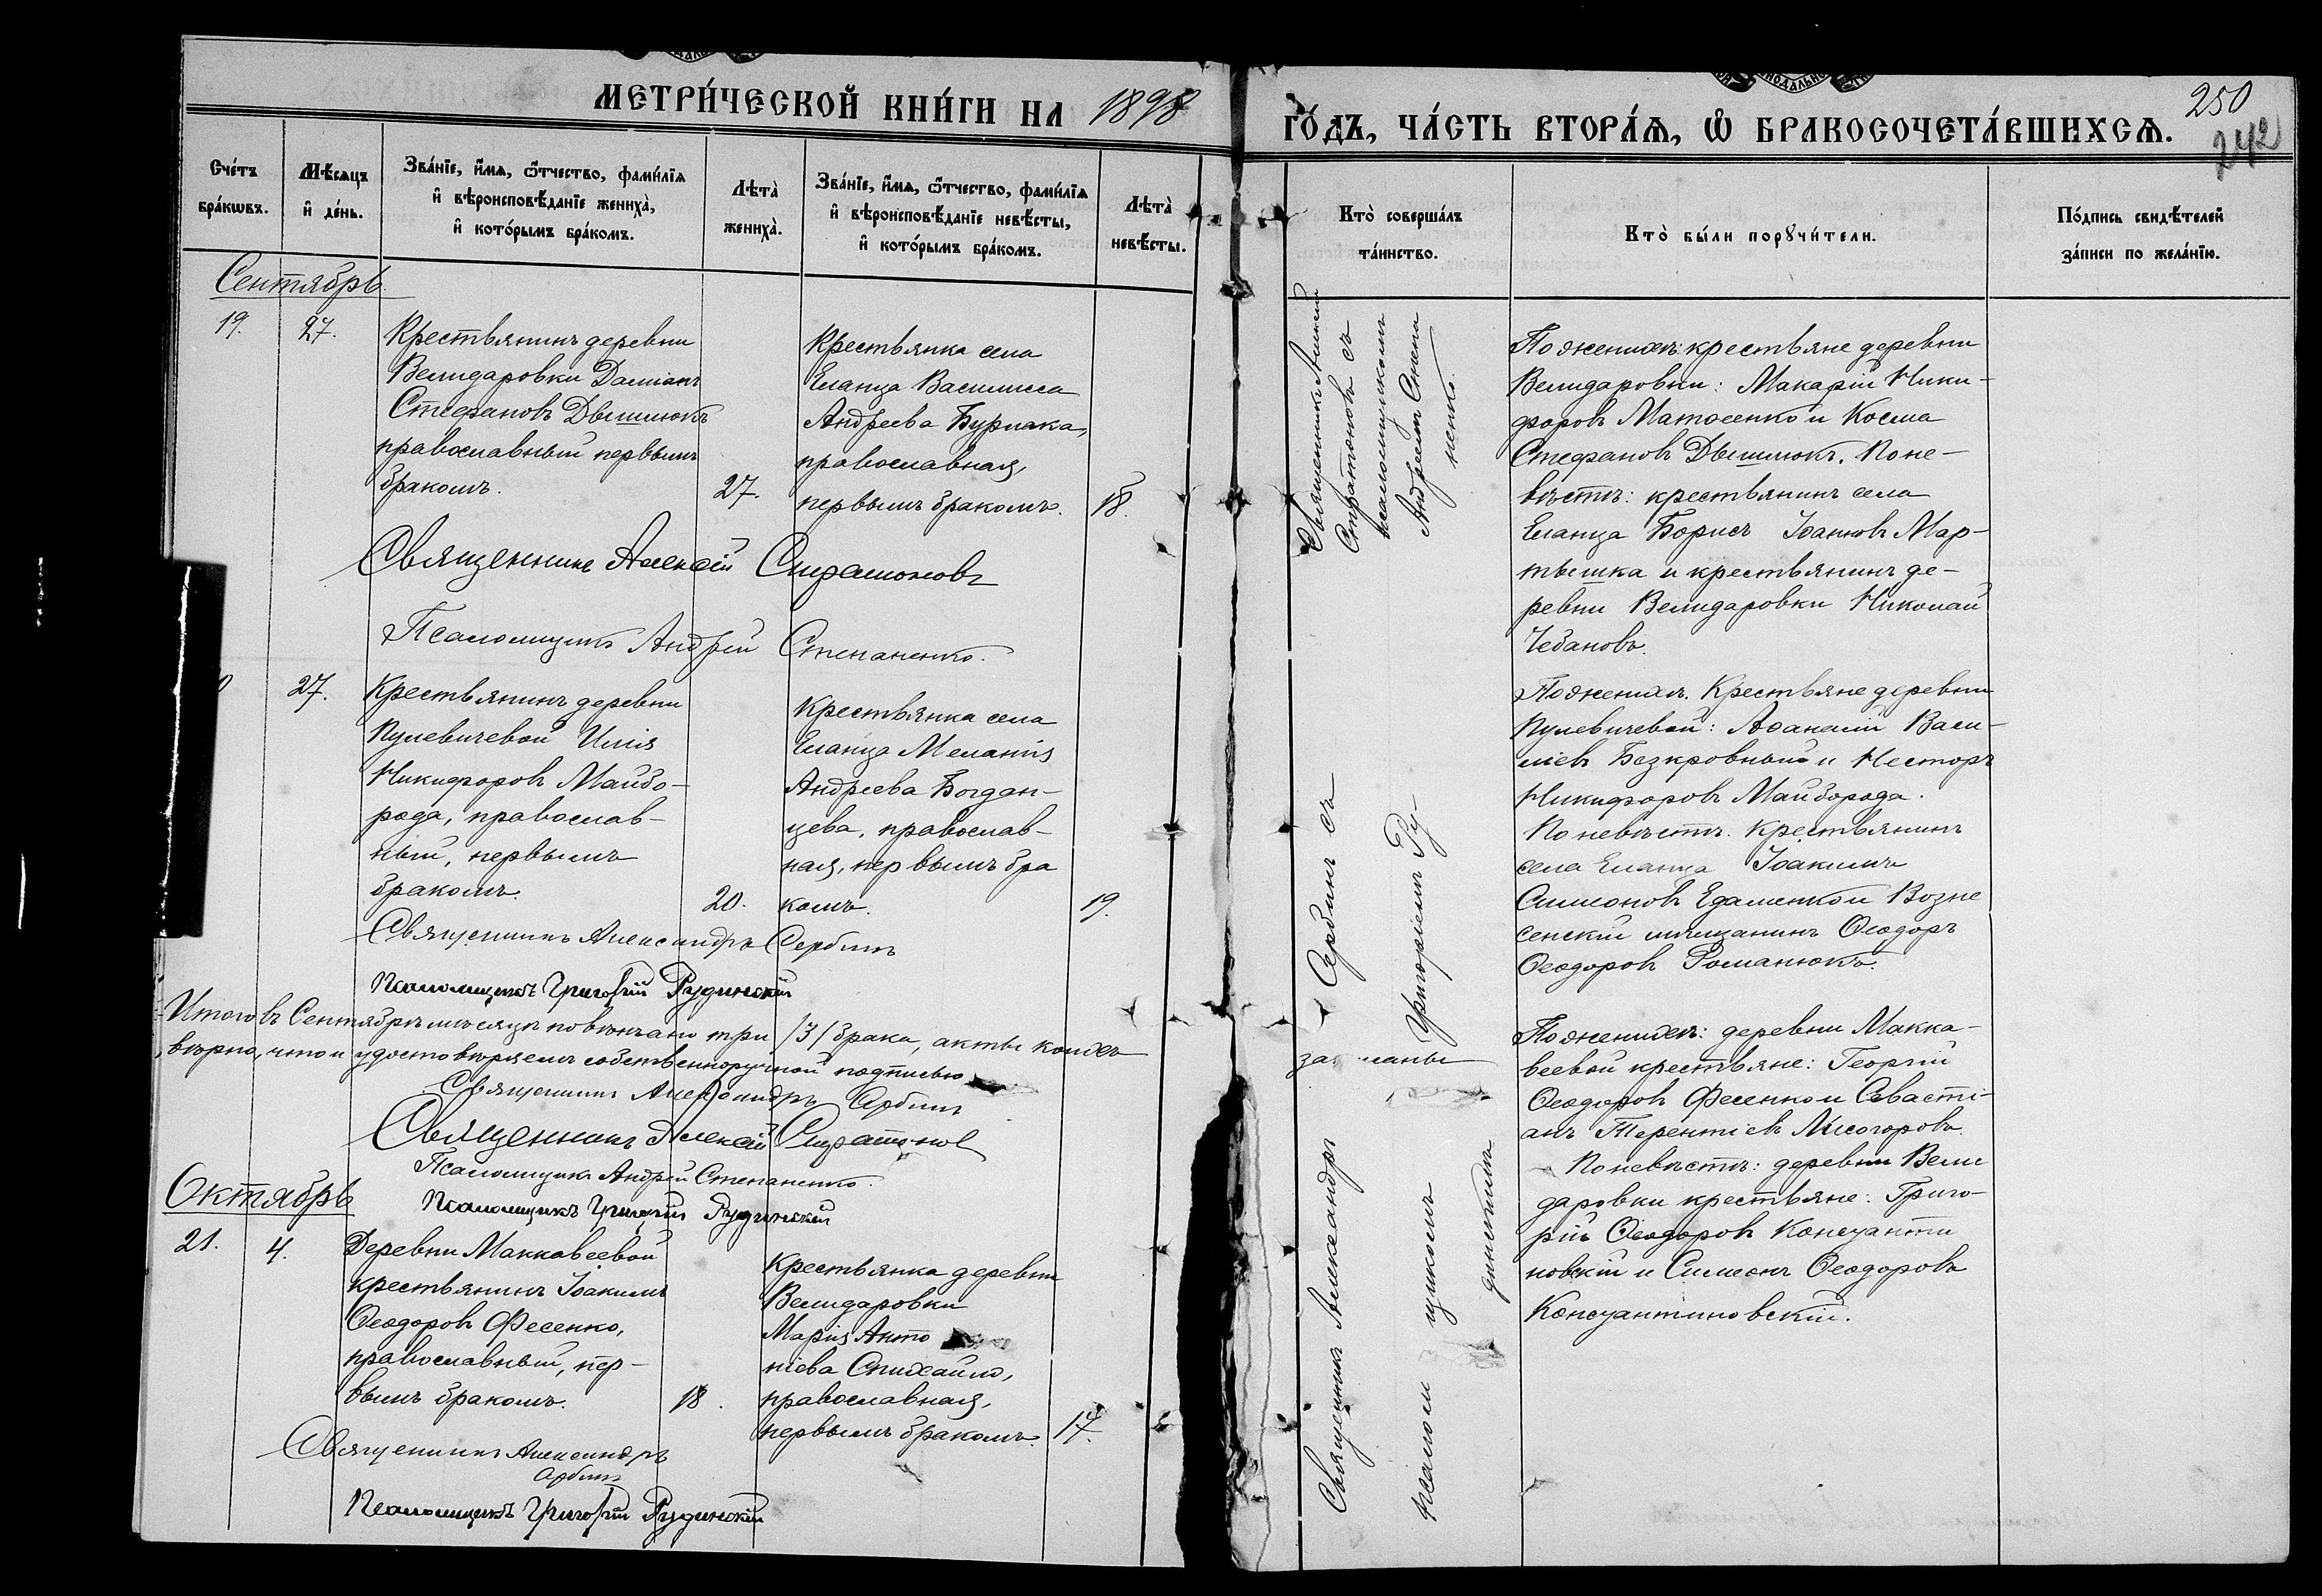 МЕТРИ́ЧЕСКОЙ КНИ́ГИ НА 1898
ГО́ДЪ, ЧА́СТЬ ВТОРА́Ѧ, Ѡ БРАКОСОЧЕТА́ВШИХСѦ.
250
242
Сче́тъ бра́кѡвъ.
Мѣ́сяцъ и де́нь.
Зва́нїе, и́мѧ, ѻ́тчество, фами́лїѧ и вѣроисповѣ́данїе жениха̀, и кото́рымъ бра́комъ.
Лѣта̀ жениха̀.
Зва́нїе, и́мѧ, ѻ́тчество, фами́лїѧ и вѣроисповѣ́данїе невѣ́сты, и кото́рымъ бра́комъ.
Лѣта̀ невѣ́сты.
Кто̀ соверша́лъ та́инство.
Кто̀ бы́ли порꙋчи́тели.
По́дпись свидѣ́телей за́писи по жела́нїю.
Сентябрь
19.
27.
Крестьянинъ деревни
Велидаровки Даміанъ
Стефановъ Двишнюкъ
православный первымъ
бракомъ.
27.
Крестьянка села
Еланца Василисса
Андреева Бурлака,
православная,
первымъ бракомъ.
18.
Священникъ Алексій
Спиратоновъ съ
псаломщикомъ
Андреемъ Степа
ненко.
По женихѣ: крестьяне деревни
Велидаровки: Макарій Ники-
форовъ Матосенко и Косма
Стефановъ Двишнюкъ. По не-
вѣстѣ: крестьянинъ села
Еланца Борисъ Іоанновъ Мар-
тышка и крестьянинъ де-
ревни Велидаровки Николай
Чебановъ.
Священникъ Алексій Спиратоновъ
Псаломщикъ Андрей Степаненко.
27.
Крестьянинъ деревни
Пулевичевой Илія
Никифоровъ Майбо-
рода, православ-
ный, первымъ
бракомъ.
20.
Крестьянка села
Еланца Меланія
Андреева Богдан-
цева, православ-
ная, первымъ бра
комъ.
19.
По женихѣ. Крестьяне деревни
Пулевичевой: Аѳанасій Васи-
ліевъ Безкровный и Несторъ
Никифоровъ Майборода.
По невѣстѣ. Крестьянинъ
села Еланца Іоакимъ
Симеоновъ Едаменко и Возне
сенскій мѣщанинъ Ѳеодоръ
Ѳеодоровъ Романюкъ.
Священникъ Александръ Сербинъ
Псаломщикъ Григорій Рудинскій
Итого въ Сентябрѣ мѣсяцѣ повѣнчано три /3/ брака, акты коихъ записаны
вѣрно, что и удостовѣряемъ собственноручной подписью
Священникъ Александръ Сербинъ
Священникъ Алексій Спиратонов
Псаломщикъ Андрей Степаненко.
Псаломщикъ Григорій Рудинскій
Октябрь
21.
4.
Деревни Маккавеевой
крестьянинъ Іоакимъ
Ѳеодоровъ Фесенко,
православный, пер-
вымъ бракомъ.
18.
Крестьянка деревни
Велидаровки
Марія Анто
ніева Спихайло,
православная,
первымъ бракомъ.
17.
Священникъ Александръ Сербинъ съ
псаломщикомъ Григоріемъ Ру-
динскимъ
По женихѣ: деревни Макка-
веевой крестьяне: Георгій
Ѳеодоровъ Фесенко и Севасті-
анъ Терентіевъ Лисогоровъ.
По невѣстѣ: деревни Вели
даровки крестьяне: Григо-
рій Ѳеодоровъ Консуанти
новскій и Симеонъ Ѳеодоровъ
Консуантиновскій.
Священникъ Александръ
Сербинъ
Псаломщикъ Григорій Рудинскій